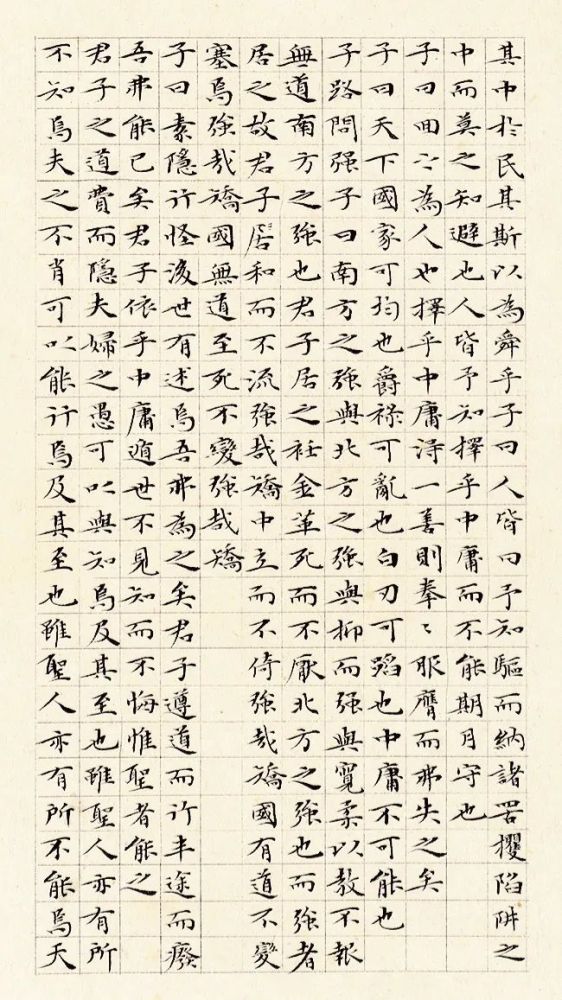 其中於民其斯以為舜乎子曰人皆曰予知驅而納諸罟擭陷阱之
中而莫之知避也人皆予知擇乎中庸而不能期月守也
子曰回之為人也擇乎中庸得一善則拳〻服膺而弗失之矣
子曰天下國家可均也爵祿可亂也白刃可蹈也中庸不可能也
子路問强子曰南方之强與北方之强與抑而强與寬柔以教不報
無道南方之强也君子居之衽金革死而不厭北方之强也而强者
居之故君子居和而不流强哉矯中立而不倚强哉矯國有道不變
塞焉强哉矯國無道至死不變强哉矯
子曰素隱行怪後世有述焉吾弗為之矣君子遵道而行半途而廢
吾弗能已矣君子依乎中庸遁世不見知而不悔惟聖者能之
君子之道費而隱夫婦之愚可以與知焉及其至也雖聖人亦有所
不知焉夫之不肖可以能行焉及其至也雖聖人亦有所不能焉天